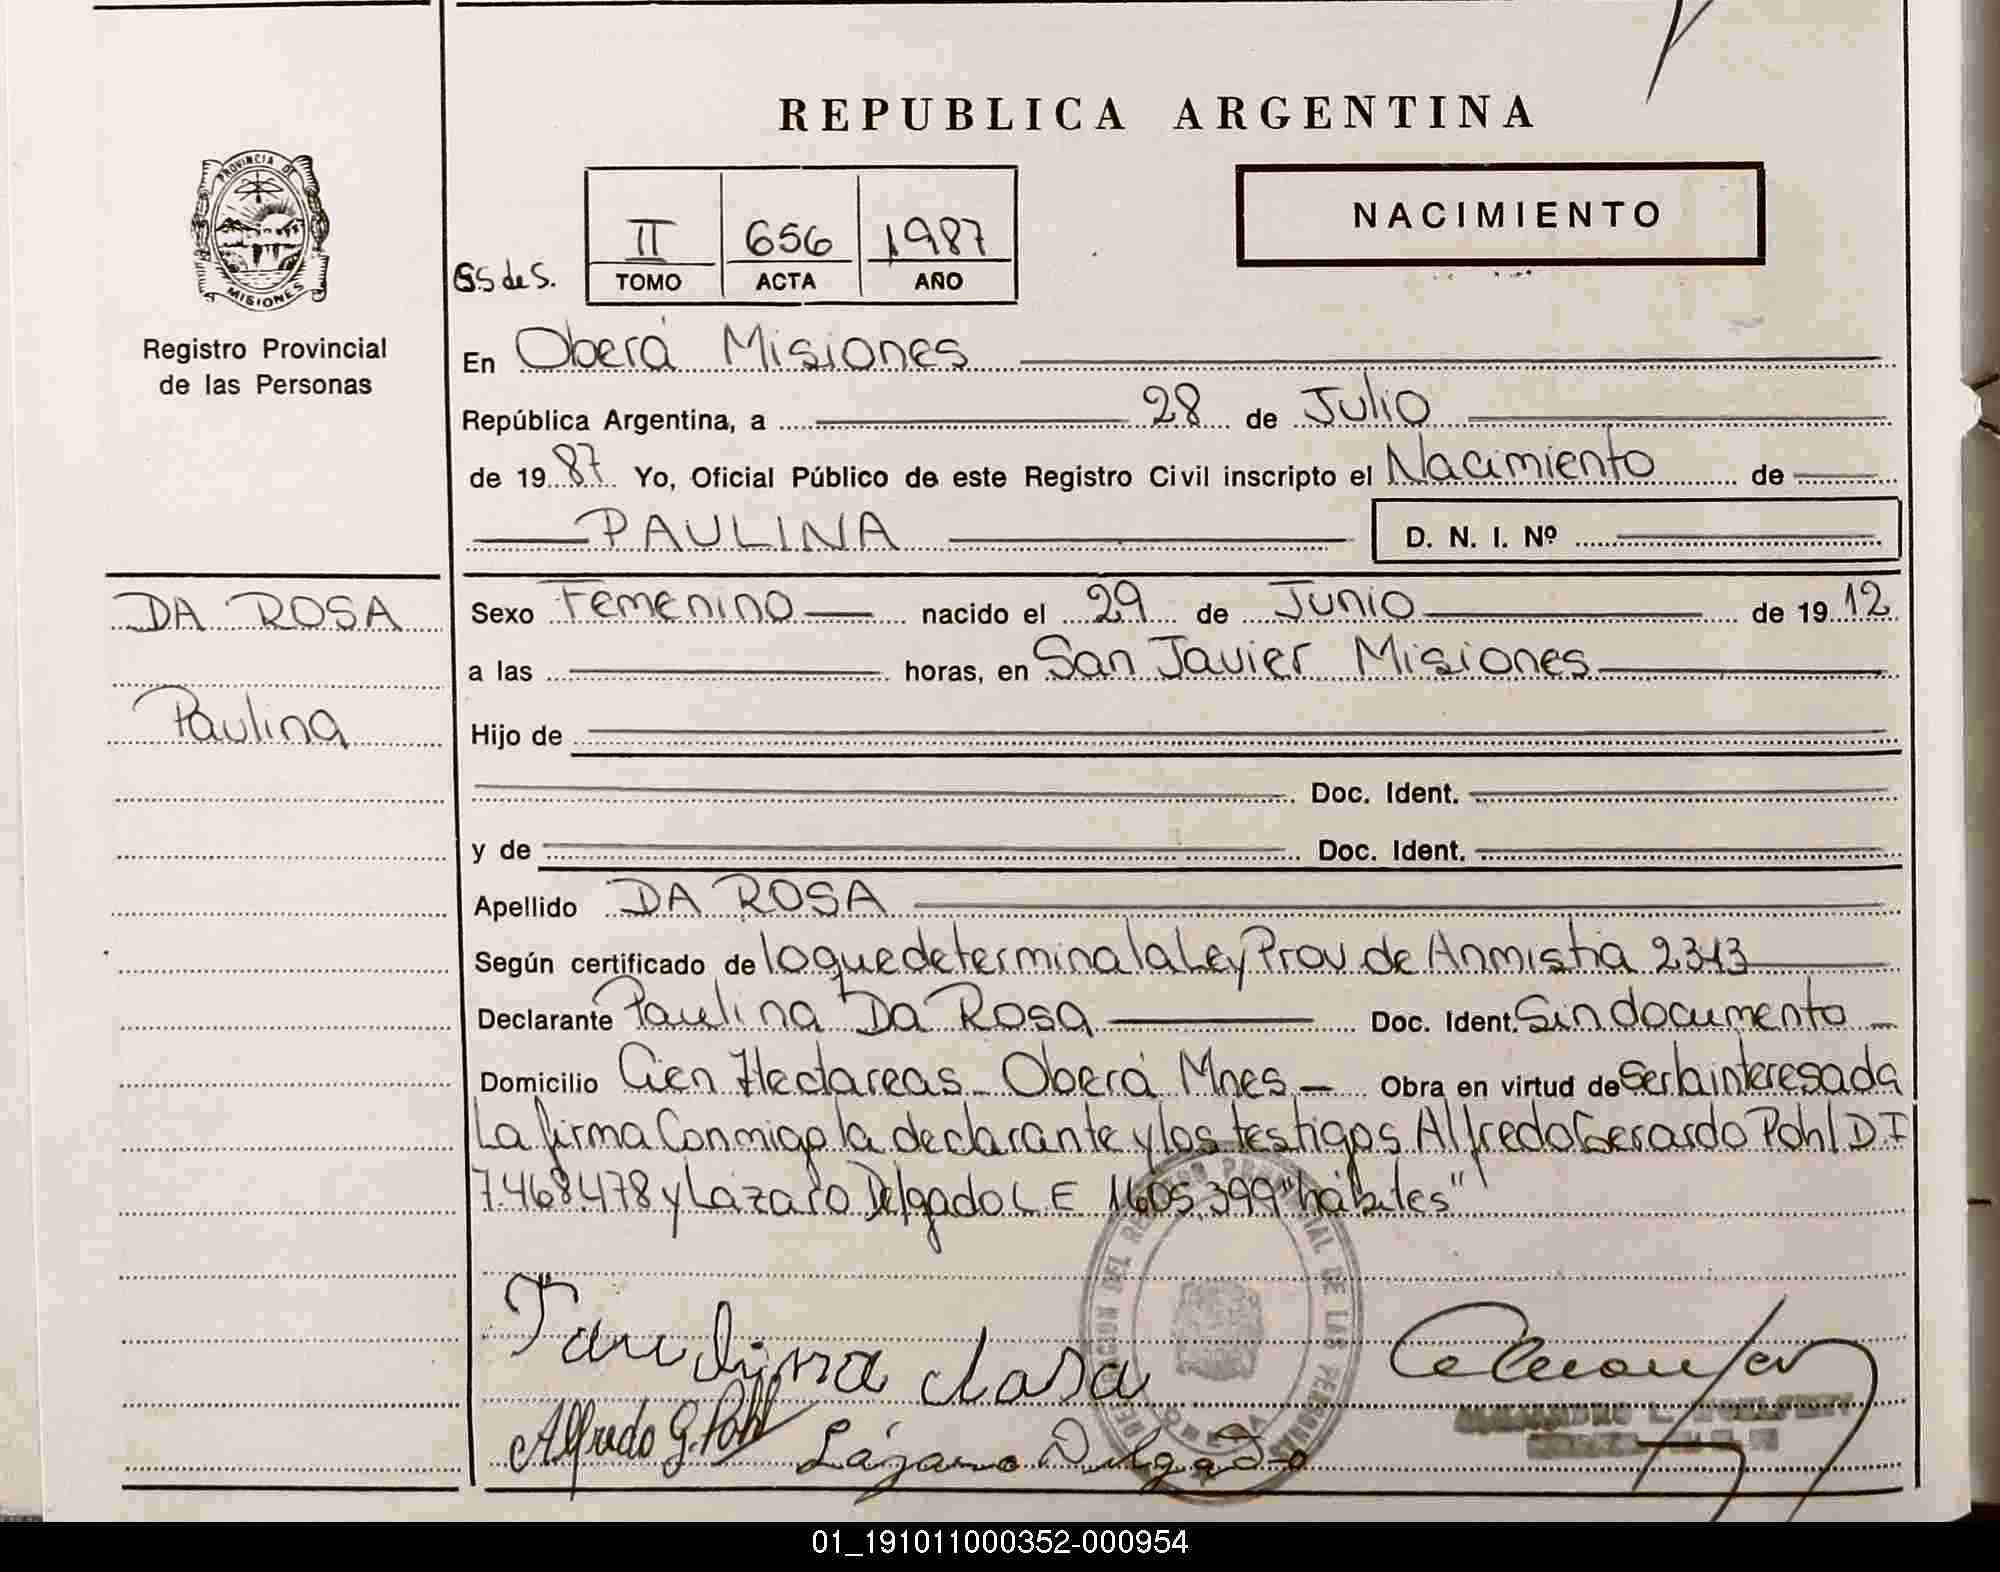 REPUBLICA ARGENTINA
PROVINCIA DE
MISIONES
Registro Provincial
de las Personas
GS de S.
II 656 1987
TOMO ACTA AÑO
NACIMIENTO
En Oberá Misiones
República Argentina, a 28 de Julio
de 1987 Yo, Oficial Público de este Registro Civil inscripto el Nacimiento de
PAULINA D. N. I. Nº
DA ROSA
Paulina
Sexo Femenino nacido el 29 de Junio de 1912
a las horas, en San Javier Misiones
Hijo de
Doc. Ident.
y de Doc. Ident.
Apellido DA ROSA
Según certificado de lo que determina la Ley Prov de Anmistia 2343
Declarante Paulina Da Rosa Doc. Ident. Sin documento
Domicilio Cien Hectareas - Oberá Mnes - Obra en virtud de Ser la interesada
La firma Conmigo la declarante y los testigos Alfredo Gerardo Pohl D I
7.468.478 y Lázaro Delgado L E 1605.399 "hábiles"
Alfredo G. Pohl Lázaro Delgado
01_191011000352-000954